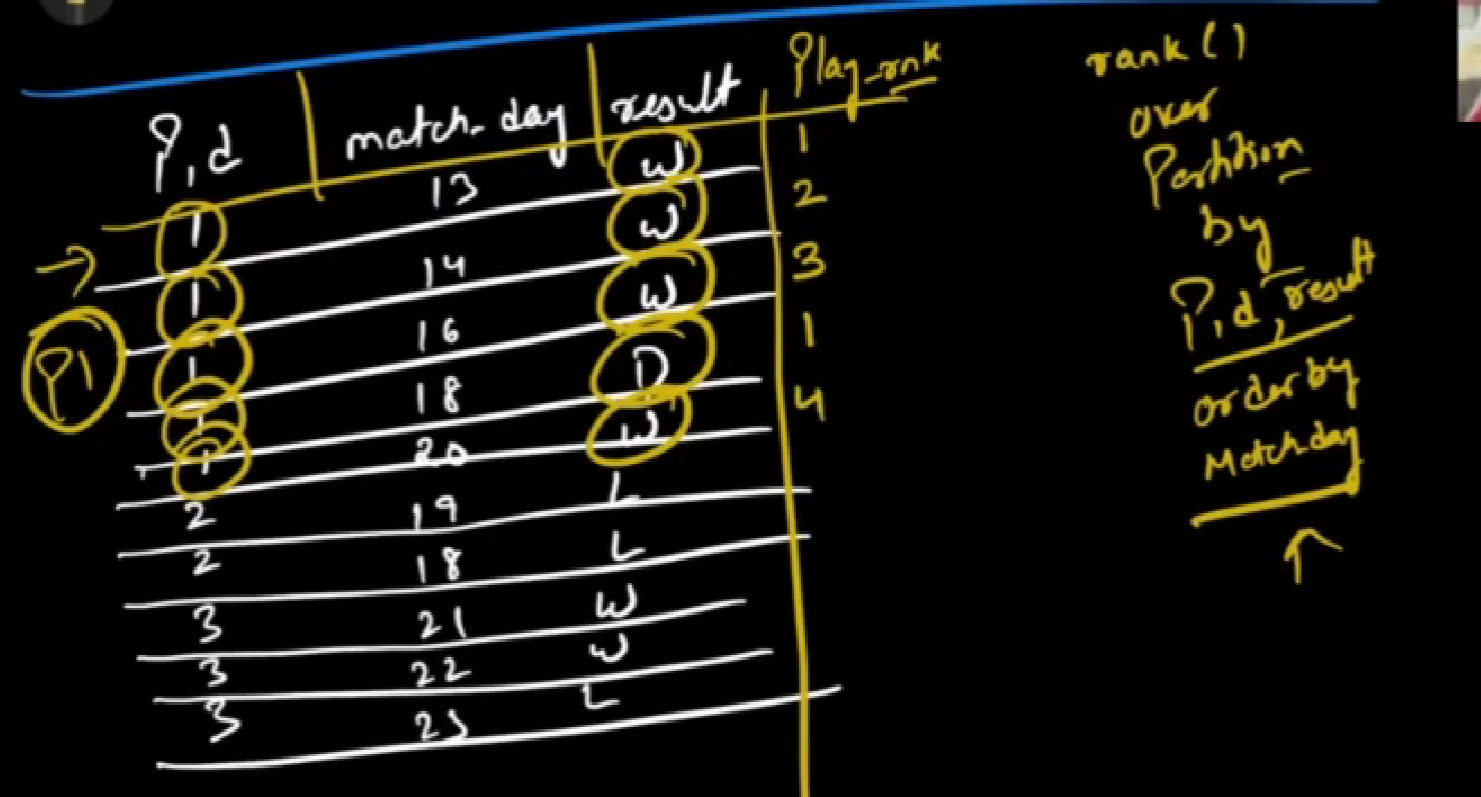 P_id match_day result Play_rnk
1 13 W 1
1 14 W 2
1 16 W 3
1 18 D 1
1 20 W 4
2 19 L
2 18 L
3 21 W
3 22 W
3 23 L
P1
rank()
over
Partition
by
P_id, result
order by
Match_day